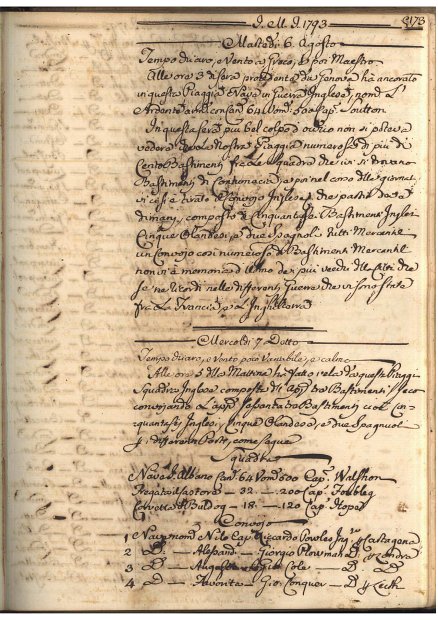 J. M. J. 1793
Martedi 6. Agosto
Tempo chiaro, e Vento a Greco, e poi Maestro
Alle ore 3 di sera proveniente da Genova ha ancorato
in questa Piaggia Nave in Guerra Inglese, nom.ª L'
Ardente armª con Canⁱ 64 Uomⁱ 500 Capⁿ Soutton
In questa sera più bel colpo d'occhio non si poteva
vedere Nostra Piaggia numerosa di più di
Cento Bastimenti fra Le Squadre che vi si trovano
Bastimenti di Contumacia, e poi nel corso della giornata
vi si è tirato il Convojo Inglese che partirà
composto di Cinquantasei Bastimenti Inglesi
Cinque Olandesi, e due Spagnoli tutti Mercantili
un Convojo così numeroso di Bastimenti Mercantili
non vi è memoria d'uomo de più vecchi che
se ne ricordi nelle differenti Guerre che vi sono state
fra La Francia, e L'Inghilterra
Mercoldi 7 Detto
Tempo chiaro, e Vento poco Variabile, e calme
Alle ore 5 della Mattina ha fatto vela da questa Piaggia
Squadra Inglese composta di tre Bastimenti
convojando sessanta tre Bastimenti cioè cin-
quantasei Inglesi, Cinque Olandesi, e due Spagnuoli
p differenti Porti, come segue
Squadra
Nave S. Albano Canⁱ 64 Uomⁱ 600 Capⁿ
Fregata — 32 — 200 Capⁿ
Corvetta il Buldog — 18 — 120 Capⁿ Hope
Convojo
1 Nav nomª Nilo Capⁿ Riccardo Powles Ingᵉ p Cartagena
2 D. — Alessand. — Giorgio Plowman D. p Londra
3 D. — Augusto — Cole — D. D.
4 D. — Favorita — Gio. Conquer — D. p